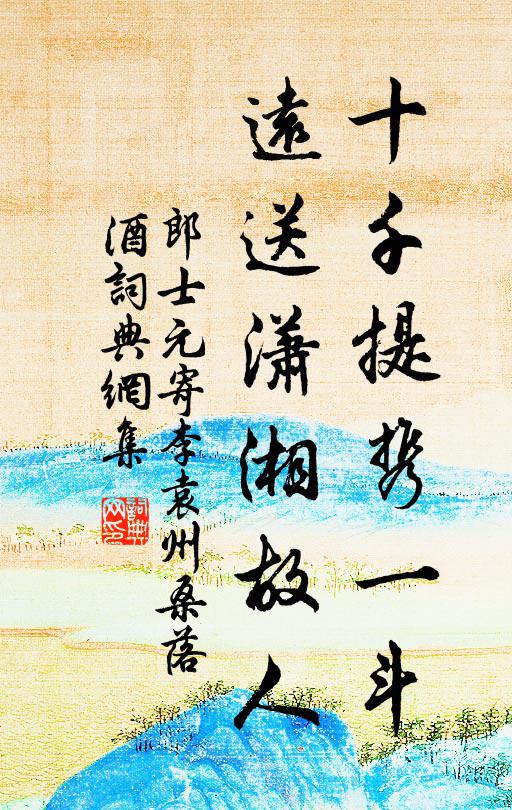 十千提携一斗
遠送瀟湘故人
郎士元寄李袁州桑落
酒詞典網集
詞典
网印